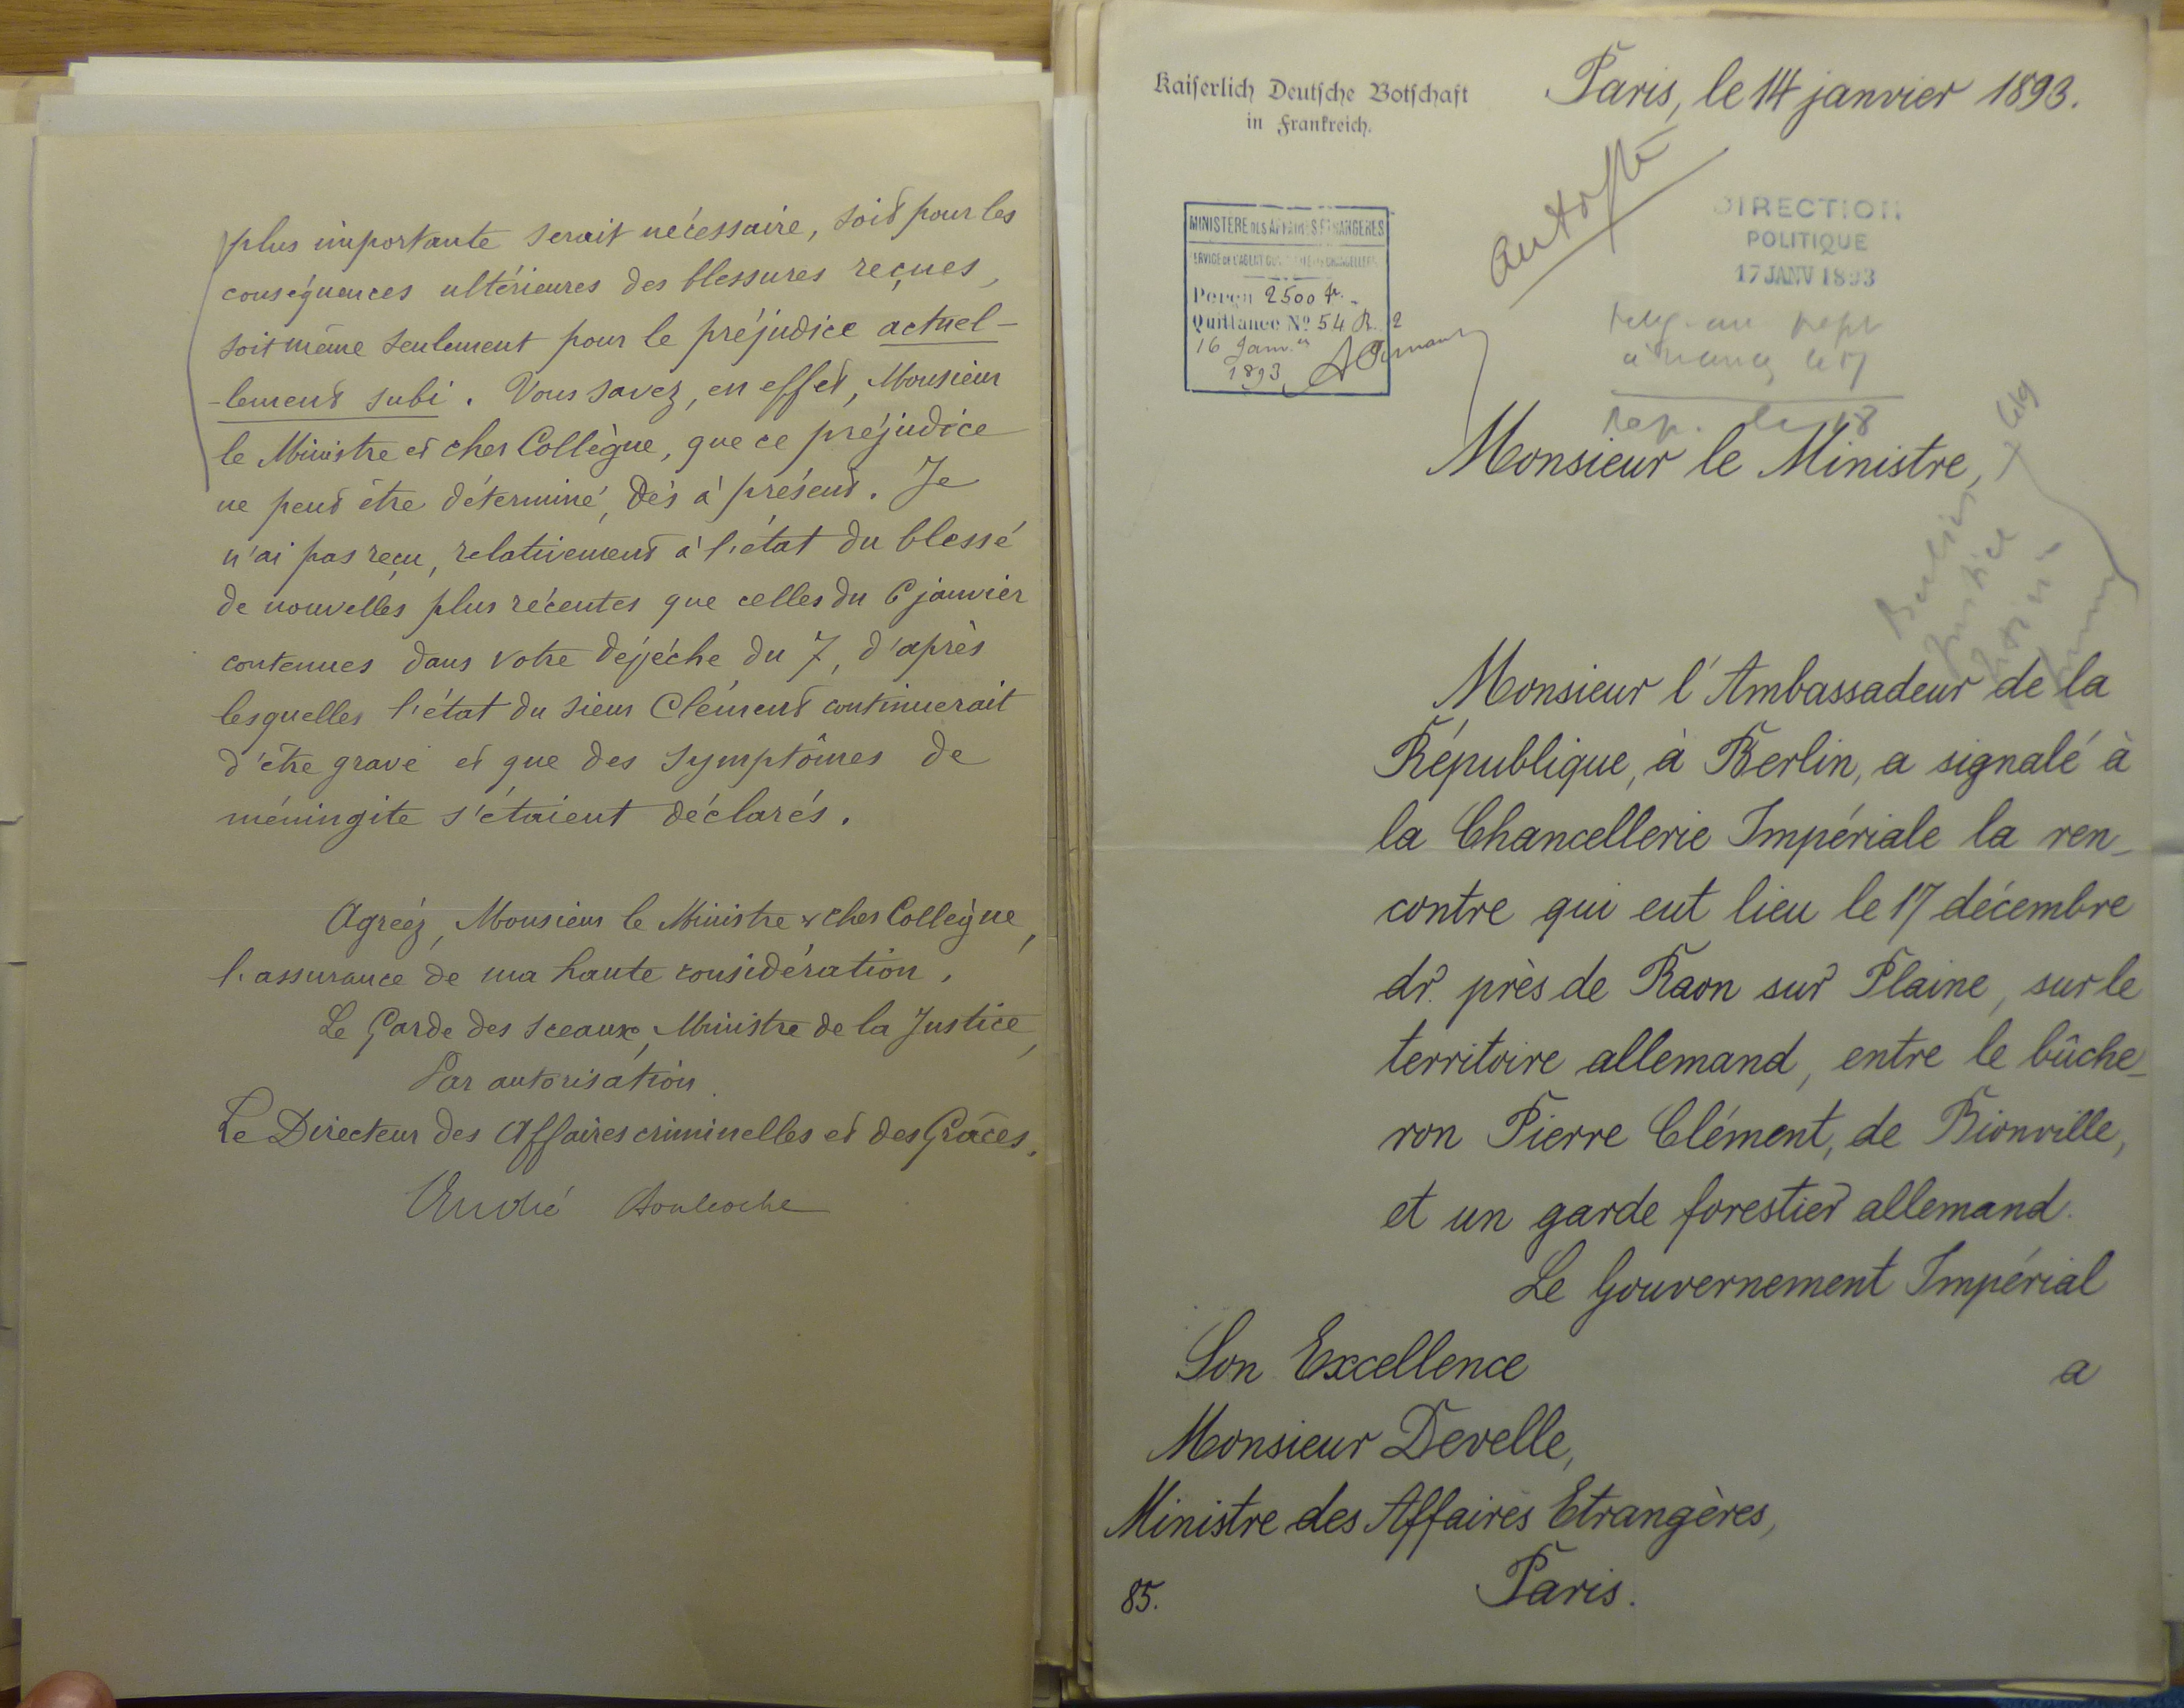 plus importante serait nécessaire, soit pour les
conséquences ultérieures des blessures reçues,
soit même seulement pour le préjudice actuel-
-lement subi. Vous savez, en effet, Monsieur
le Ministre et cher Collègue, que ce préjudice
ne peut être déterminé, dès à présent. Je
n'ai pas reçu, relativement à l'état du blessé
de nouvelles plus récentes que celles du 6 janvier
contenues dans votre dépêche du 7, d'après
lesquelles l'état du sieur Clément continuerait
d'être grave et que des symptômes de
méningite s'étaient déclarés.
Agréez, Monsieur le Ministre & cher Collègue,
l'assurance de ma haute considération.
Le Garde des Sceaux, Ministre de la Justice,
Par autorisation.
Le Directeur des Affaires criminelles et des Grâces.
André Boulloche
Kaiserlich Deutsche Botschaft
in Frankreich.
Paris, le 14 janvier 1893.
MINISTÈRE DES AFFAIRES ETRANGÈRES
Perçu 2500 fr.
Quittance No 54 R. 2
16 Janv.er
1893
DIRECTION
POLITIQUE
17 JANV 1893
le 17
rep. le 18
Monsieur le Ministre,
Berlin
Justice
Monsieur l'Ambassadeur de la
République, à Berlin, a signalé à
la Chancellerie Impériale la ren-
contre qui eut lieu le 17 décembre
dr. près de Raon sur Plaine, sur le
territoire allemand, entre le bûche-
ron Pierre Clément, de Bionville,
et un garde forestier allemand.
Le Gouvernement Impérial
a
Son Excellence
Monsieur Develle,
Ministre des Affaires Etrangères,
Paris.
85.